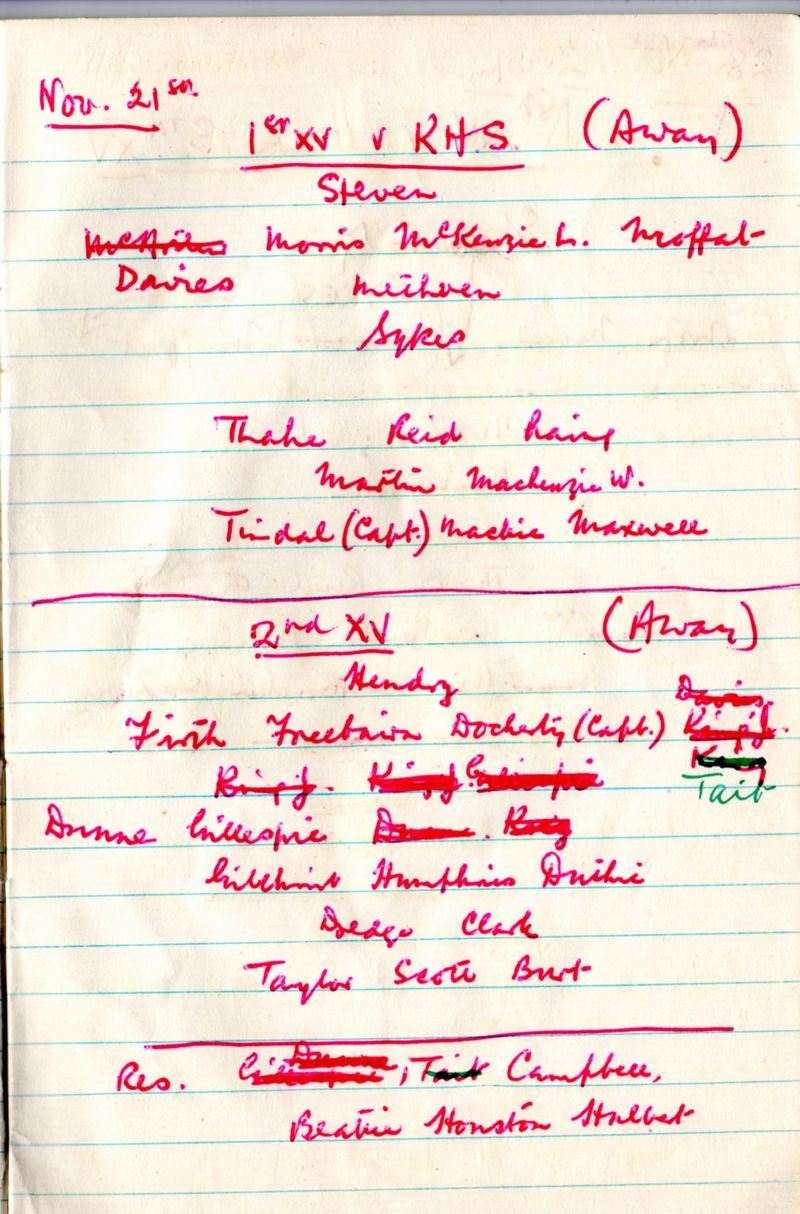 Nov. 21st.
1st XV v R.H.S. (Away)
Steven
Morris McKenzie L. Moffat
Davies Methven
Sykes
Thake Reid Laing
Martin Mackenzie W.
Tindal (Capt.) Mackie Maxwell
2nd XV (Away)
Hendry
Davies.
Firth Freebairn Docherty (Capt.) King J.
King J. King J. Gillespie Tait
Dunne Gillespie Dunne. King
Gilchrist Humphries Duthie
Dredge Clark
Taylor Scott Burt
Dunne
Res. Gillespie, Tait Campbell,
Beattie Houston Halbert